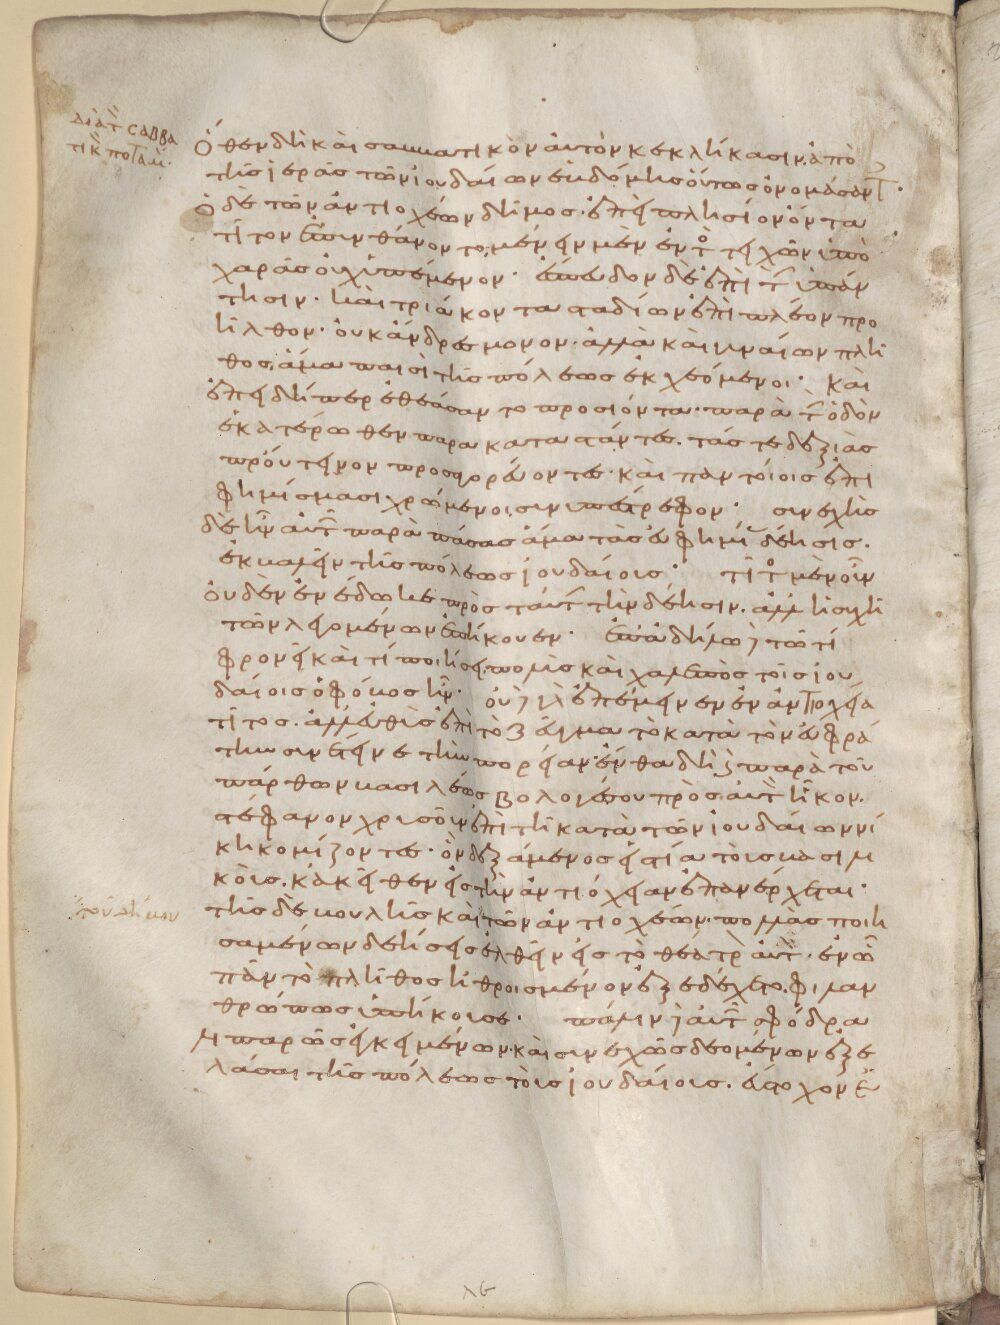 διὰ τ σαββα
τικ ποταμ
ὅθεν δὴ καὶ σαββατικὸν αὐτὸν κεκλήκασιν, ἀπὸ
τῆς ἱερᾶς τῶν ἰουδαίων ἑβδόμης οὕτως ὀνομάσαντ
ὁ δὲ τῶν ἀντιοχέων δῆμος. ἐπεὶ πλησίον ὄντα
τίτον ἐπυνθάνοντο, μένειν μὲν ἐντὸ τειχῶν ὑπὸ
χαρᾶς οὐχ ὑπέμενον. ἔσπευδον δὲ ἐπὶ τ ὑπάν
τησιν. καὶ τριάκοντα σταδίων ἐπὶ πλέον προ
ῆλθον. οὐκ ἄνδρες μονον. ἀλλὰ καὶ γυναίων πλῆ
θος, ἅμα παισὶ τῆς πόλεως ἐκχεόμενοι. καὶ
ἐπειδήπερ ἐθεάσαντο προσιόντα. παρὰ τ ὁδὸν
ἑκατέρωθεν παρακαταστάντες. τάς τε δεξιὰς
προύτεινον προσαγορεύοντες. καὶ παντοίοις ἐπι
φημίσμασι χρώμενοι, συνυπέστρεφον. συνεχὴς
δὲ ἦν αὐτ παρὰ πάσας ἅμα τὰς εὐφημί δέησις.
ἐκβαλεῖν τῆς πόλεως ἰουδαίους. τίτ μὲν οὖν
οὐδὲν ἐνέδωκε πρὸς ταύτ τὴν δέησιν. ἀλλ ἡσυχῆ
τῶν λεγομένων ἐπήκουεν. ἐπ ἀδήλω τῶ τί
φρονεῖ καὶ τί ποιήσει, πολὺς καὶ χαλεπὸς τοῖς ἰου
δαίοις ὁ φόβος ἦν. οὐ ὑπέμεινεν ἐν ἀντιοχεία
τίτος. ἀλλ εὐθὺς ἐπὶ τὸ ζεῦγμα τὸ κατὰ τὸν εὐφρά
την συνέτεινε τὴν πορείαν. ἔνθα δὴ καὶ παρὰ τοῦ
πάρθων βασιλέως βολογέσου πρὸς αὐτ ἧκον.
στέφανον χρυσοῦν ἐπὶ τῆ κατὰ τῶν ἰουδαίων νί
κη κομίζοντες. ὃν δεξάμενος εἱστία τοὺς βασιλι
κούς. κἀκεῖθεν εἰς τὴν ἀντιόχειαν ἐπανέρχεται.
τοῦ δήμου
τῆς δὲ βουλῆς καὶ τῶν ἀντιοχέων. πολλὰς ποιη
σαμένων δεήσεις ἐλθεῖν εἰς τὸ θέατρ αὐτ. ἐν ῶ
πᾶν τὸ πλῆθος ἠθροισμένον ἐξεδέχετο. φιλαν
θρώπως ὑπήκουσε. πάλιν αὐτ σφόδρα
λιπαρῶς ἐγκειμένων. καὶ συνεχῶς δεομένων ἐξε
λάσαι τῆς πόλεως τοὺς ἰουδαίους. εὔστοχον ἐ